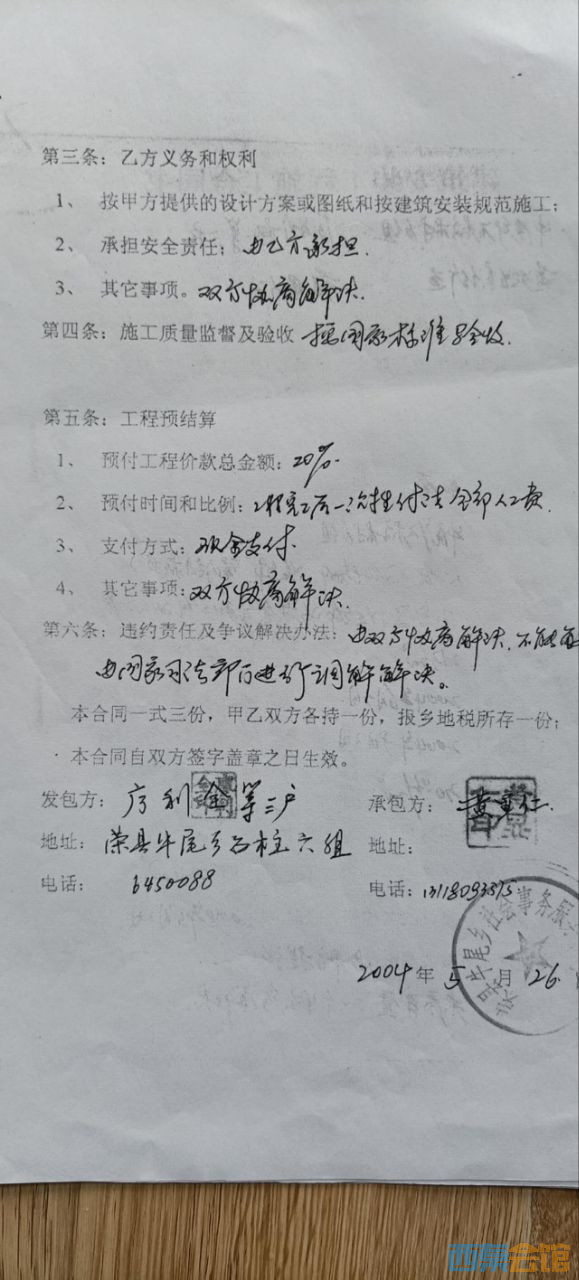 第三条：乙方义务和权利
1、 按甲方提供的设计方案或图纸和按建筑安装规范施工；
2、 承担安全责任；由乙方承担.
3、 其它事项。双方协商解决.
第四条：施工质量监督及验收 按国家标准验收.
第五条：工程预结算
1、 预付工程价款总金额：20%.
2、 预付时间和比例：工程完工后一次性付清全部人工费.
3、 支付方式：现金支付.
4、 其它事项：双方协商解决.
第六条：违约责任及争议解决办法：由双方协商解决.不能
由国家司法部门进行调解解决。
本合同一式三份，甲乙双方各持一份，报乡地税所存一份；
本合同自双方签字盖章之日生效。
发包方： 利金等三户 承包方：黄
地址：荣县牛尾乡石柱六组 地址：
电话： 6450088 电话：
牛尾乡社会事务服
2004年5月26
西祠会馆